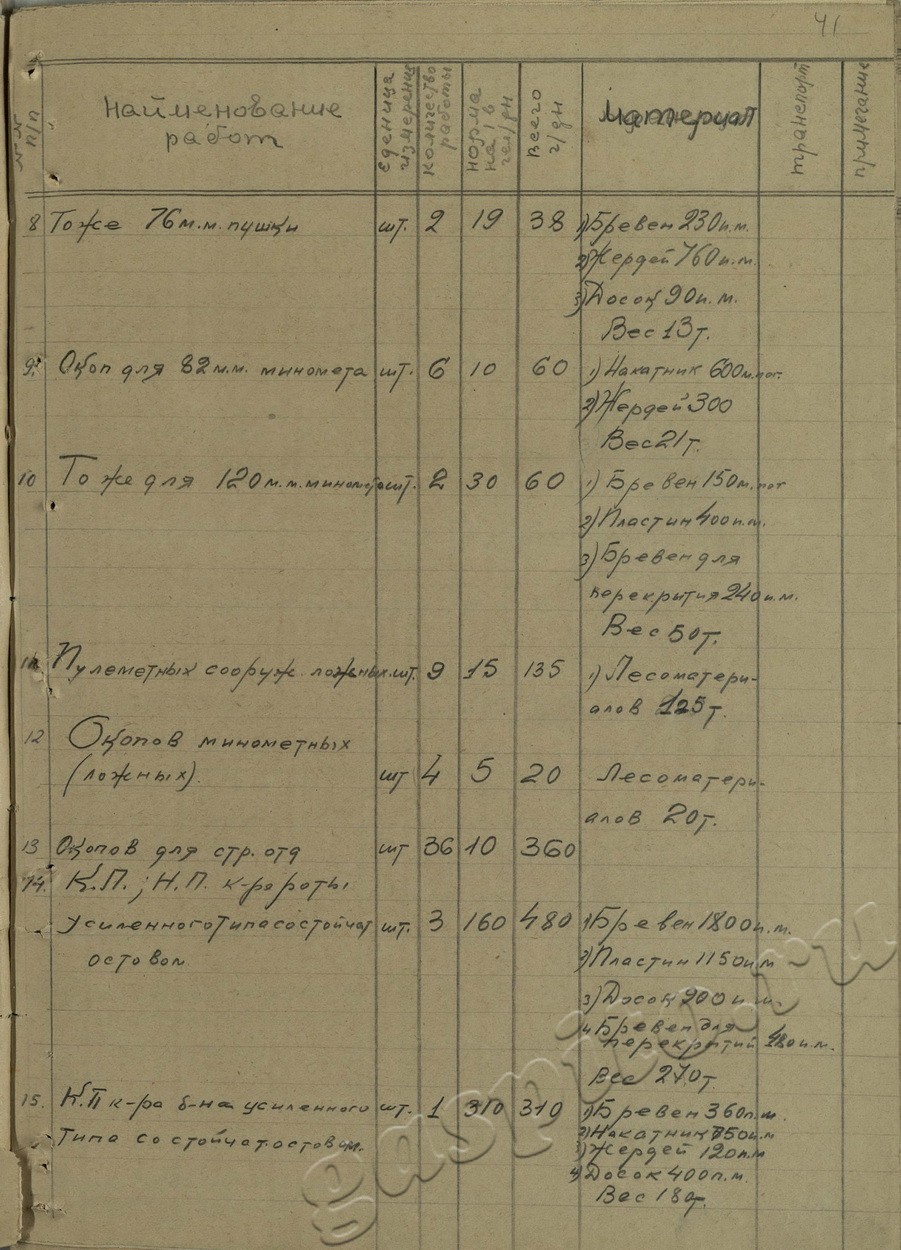 41
№№ п/п
Найменование работ
Еденица измерения
Количество работы
Норма на 1 в чел/дн
Всего ч/дн
Материал
транспорт
примечание
8 Тоже 76 м.м. пушки шт. 2 19 38 1) Бревен 230 п.м.
2) Жердей 760 п.м.
3) Досок 90 п.м.
Вес 13 т.
9. Окоп для 82 м.м. миномета шт. 6 10 60 1) Накатник 600 м. пог.
2) Жердей 300
Вес 21 т.
10 Тоже для 120 м.м. миномета шт. 2 30 60 1) Бревен 150 м. пог
2) Пластин 400 п.м.
3) Бревен для
перекрытия 240 п.м.
Вес 50 т.
11. Пулеметных сооруж. ложных. шт. 9 15 135 1) Лесоматери-
алов 125 т.
12 Окопов минометных
(ложных). шт 4 5 20 Лесоматери-
алов 20 т.
13 Окопов для стр. отд шт 36 10 360
14. К.П.; Н.П. к-ра роты
Усиленного типа со стойчат шт. 3 160 480 1) Бревен 1800 п.м.
остовом 2) Пластин 1150 п.м
3) Досок 900 п.м.
4 Бревен для
перекрытий 480 п.м.
Вес 270 т.
15. К.П к-ра б-на усиленного шт. 1 310 310 1) Бревен 360 п.м.
Типа со стойчат остовом. 2) Накатник 350 п.м
3) Жердей 120 п.м
4) Досок 400 п.м.
Вес 180 т.
gaspito.ru